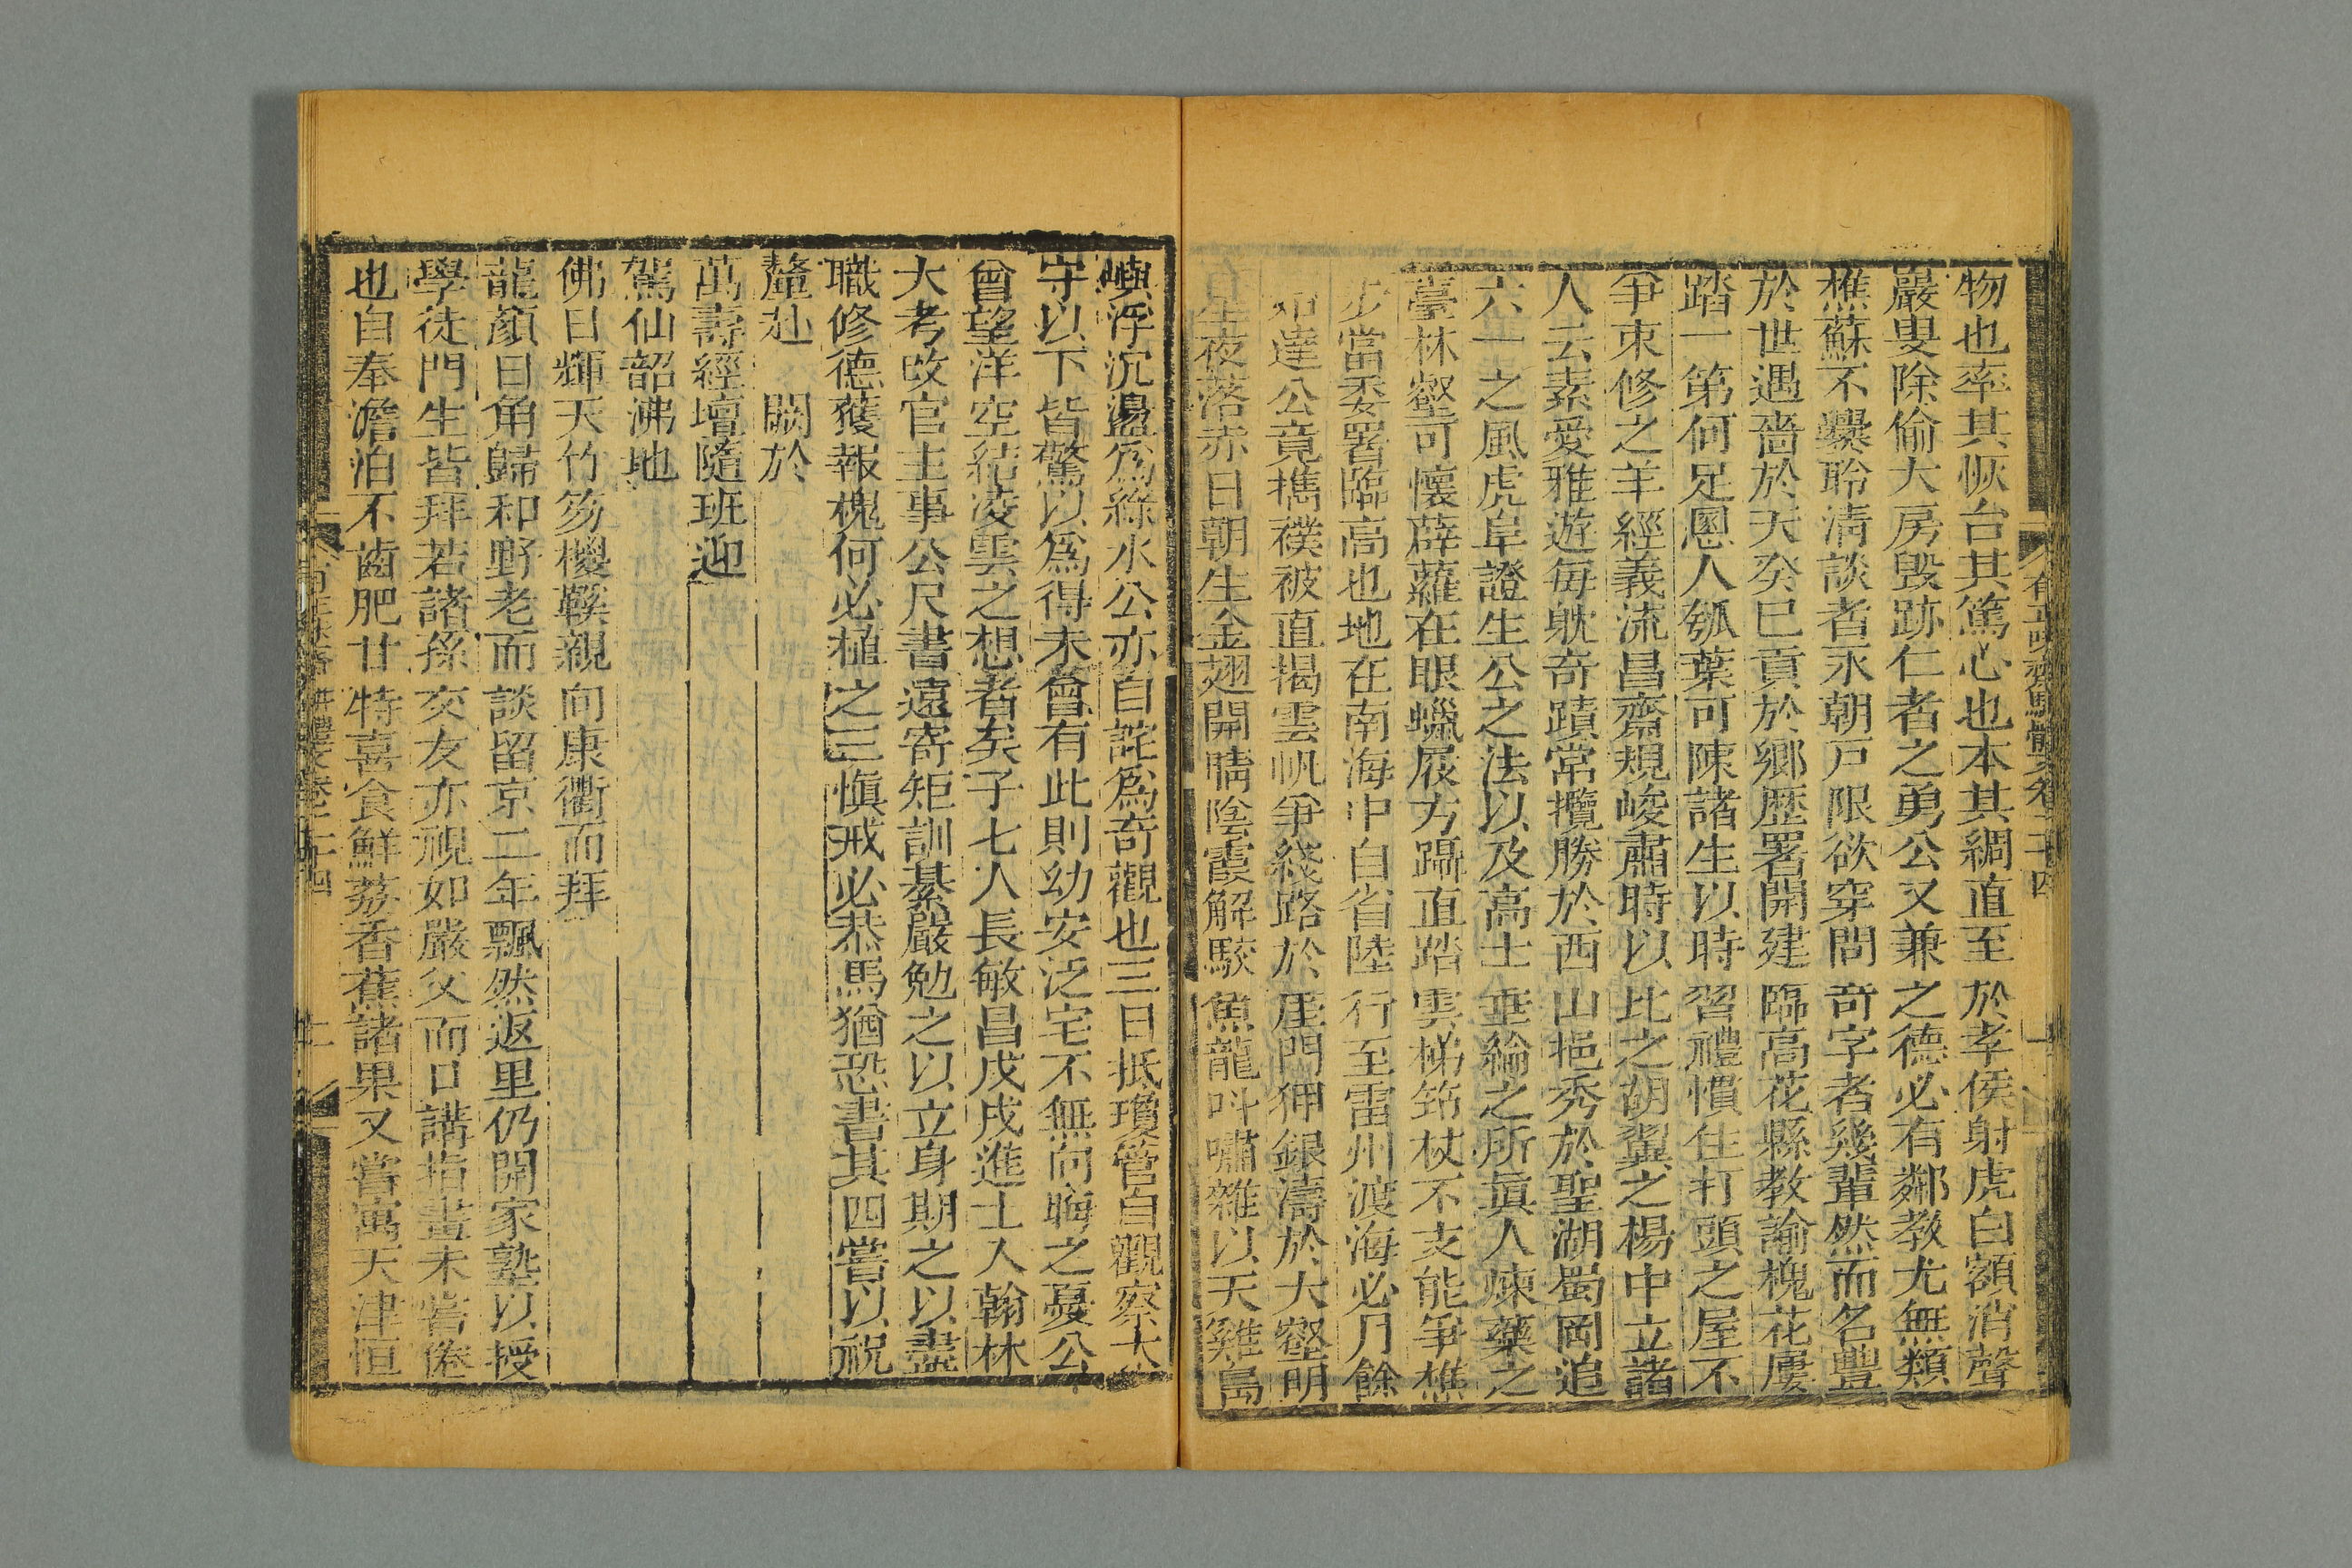 物也率其恢台其篤心也本其綢直至於孝侯射虎白額消聲
嚴叟除偷大房毁跡仁者之勇公又兼之德必有鄰教尤無類
樵蘇不爨聆清談者永朝戸限欲穿問奇字者幾輩然而名豐
於世遇嗇於天癸巳貢於鄉歷署開建臨高花縣教諭槐花屢
踏一第何足慁人瓠葉可陳諸生以時習禮慣住打頭之屋不
爭束修之羊經義流昌齋規峻肅時以比之胡翼之楊中立諸
人云素愛雅遊每躭奇蹟常攬勝於西山挹秀於聖湖蜀岡追
六一之風虎阜證生公之法以及高士垂綸之所眞人煉藥之
臺林壑可懷薜蘿在眼蠟屐方躡直踏雲梯筇杖不支能爭樵
步當委署臨高也地在南海中自省陸行至雷州渡海必月餘
達公竟攜襆被直揭雲帆爭綫路於厓門狎銀濤於大壑明
星夜落赤日朝生金翅開睛陰霞解駮魚龍呌嘯雜以天雞島
嶼浮沉盪爲綠水公亦自詫爲奇觀也三日抵瓊管自觀察太
守以下皆驚以爲得未曾有此則幼安泛宅不無向晦之憂公
曾望洋空結凌雲之想者矣子七人長敏昌戊戌進士入翰林
大考改官主事公尺書遠寄矩訓綦嚴勉之以立身期之以盡
職修德獲報槐何必植之三愼戒必恭馬猶恐書其四嘗以祝
釐赴闕於
萬壽經壇隨班迎
駕仙韶沸地
佛日輝天竹笏椶鞵親向康衢而拜
龍顔日角歸和野老而談留京二年飄然返里仍開家塾以授
學徒門生皆拜若諸孫交友亦視如嚴父而口講指畫未嘗倦
也自奉澹泊不齒肥甘特喜食鮮荔香蕉諸果又嘗寓天津恒